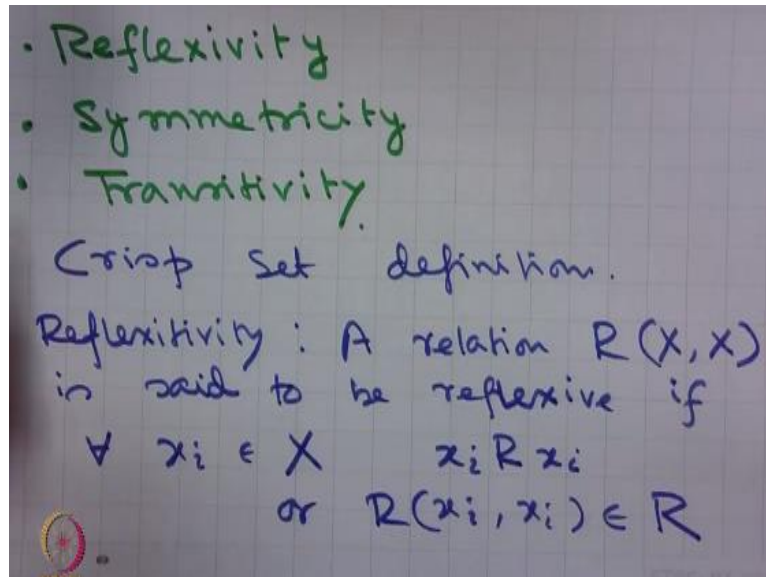 • Reflexivity
• Symmetricity
• Transitivity.
Crisp Set definition.
Reflexitivity : A relation R(X, X)
is said to be reflexive if
∀ xi ∈ X xi R xi
or R(xi, xi) ∈ R